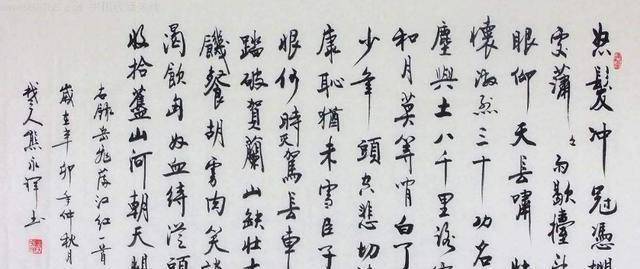 怒髮冲冠憑欄
處瀟々雨歇擡
眼仰天長嘯壯
懷激烈三十功名
塵與土八千里路
和月莫等閒白了
少年頭空悲切
康恥猶未雪臣子
恨何時灭駕長車
踏破賀蘭山缺壯
饑餐胡虜肉笑談
渴飲匈奴血待從頭
收拾舊山河朝天
右錄岳飛满江红一首
歲在辛卯年仲秋月
人熊永